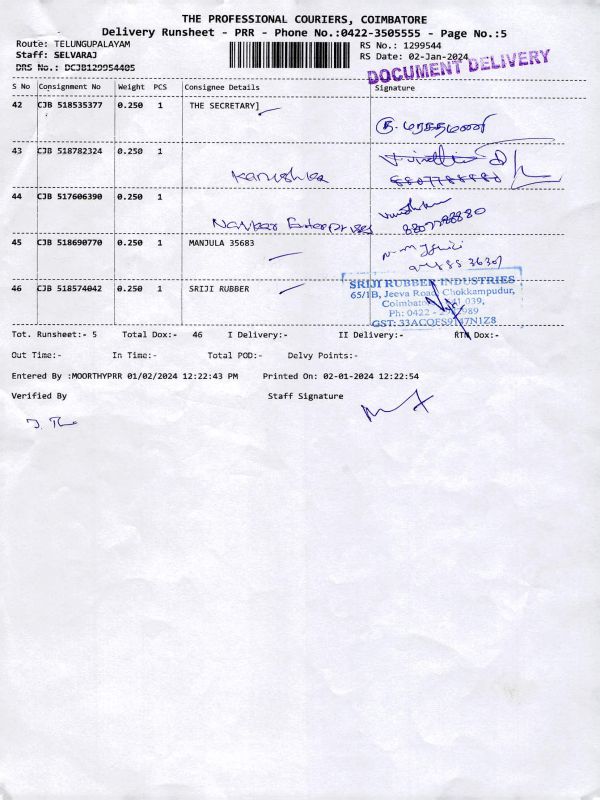 THE PROFESSIONAL COURIERS, COIMBATORE
Delivery Runsheet - PRR - Phone No.:0422-3505555 - Page No.:5
Route: TELUNGUPALAYAM
RS No.: 1299544
Staff: SELVARAJ
RS Date: 02-Jan-2024
DRS No.: DCJB129954405
DOCUMENT DELIVERY
S No Consignment No Weight PCS Consignee Details Signature
42 CJB 518535377 0.250 1 THE SECRETARY]
43 CJB 518782324 0.250 1
Kanishka
8807788880
44 CJB 517606390 0.250 1
Navkar Enterprises
8807788880
45 CJB 518690770 0.250 1 MANJULA 35683
46 CJB 518574042 0.250 1 SRIJI RUBBER
SRIJI RUBBER INDUSTRIES
65/1B, Jeeva Road, Chokkampudur,
Coimbatore 641 039,
Ph: 0422 - 989
GST: 33ACQFS9147N1Z8
Tot. Runsheet:- 5 Total Dox:- 46 I Delivery:- II Delivery:- RTN Dox:-
Out Time:- In Time:- Total POD:- Delvy Points:-
Entered By :MOORTHYPRR 01/02/2024 12:22:43 PM Printed On: 02-01-2024 12:22:54
Verified By Staff Signature